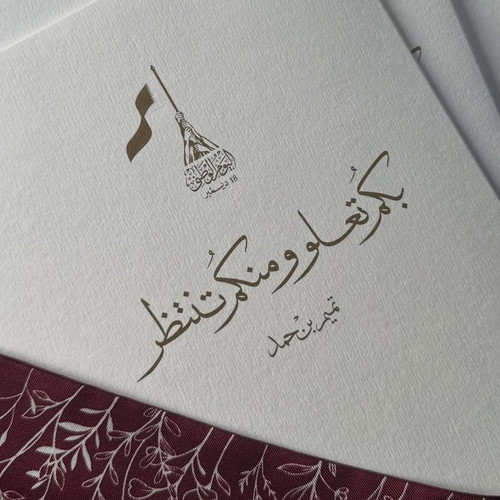 اليوم الوطني
18 ديسمبر
بكم تعلو ومنكم تنتظر
تميم بن حمد